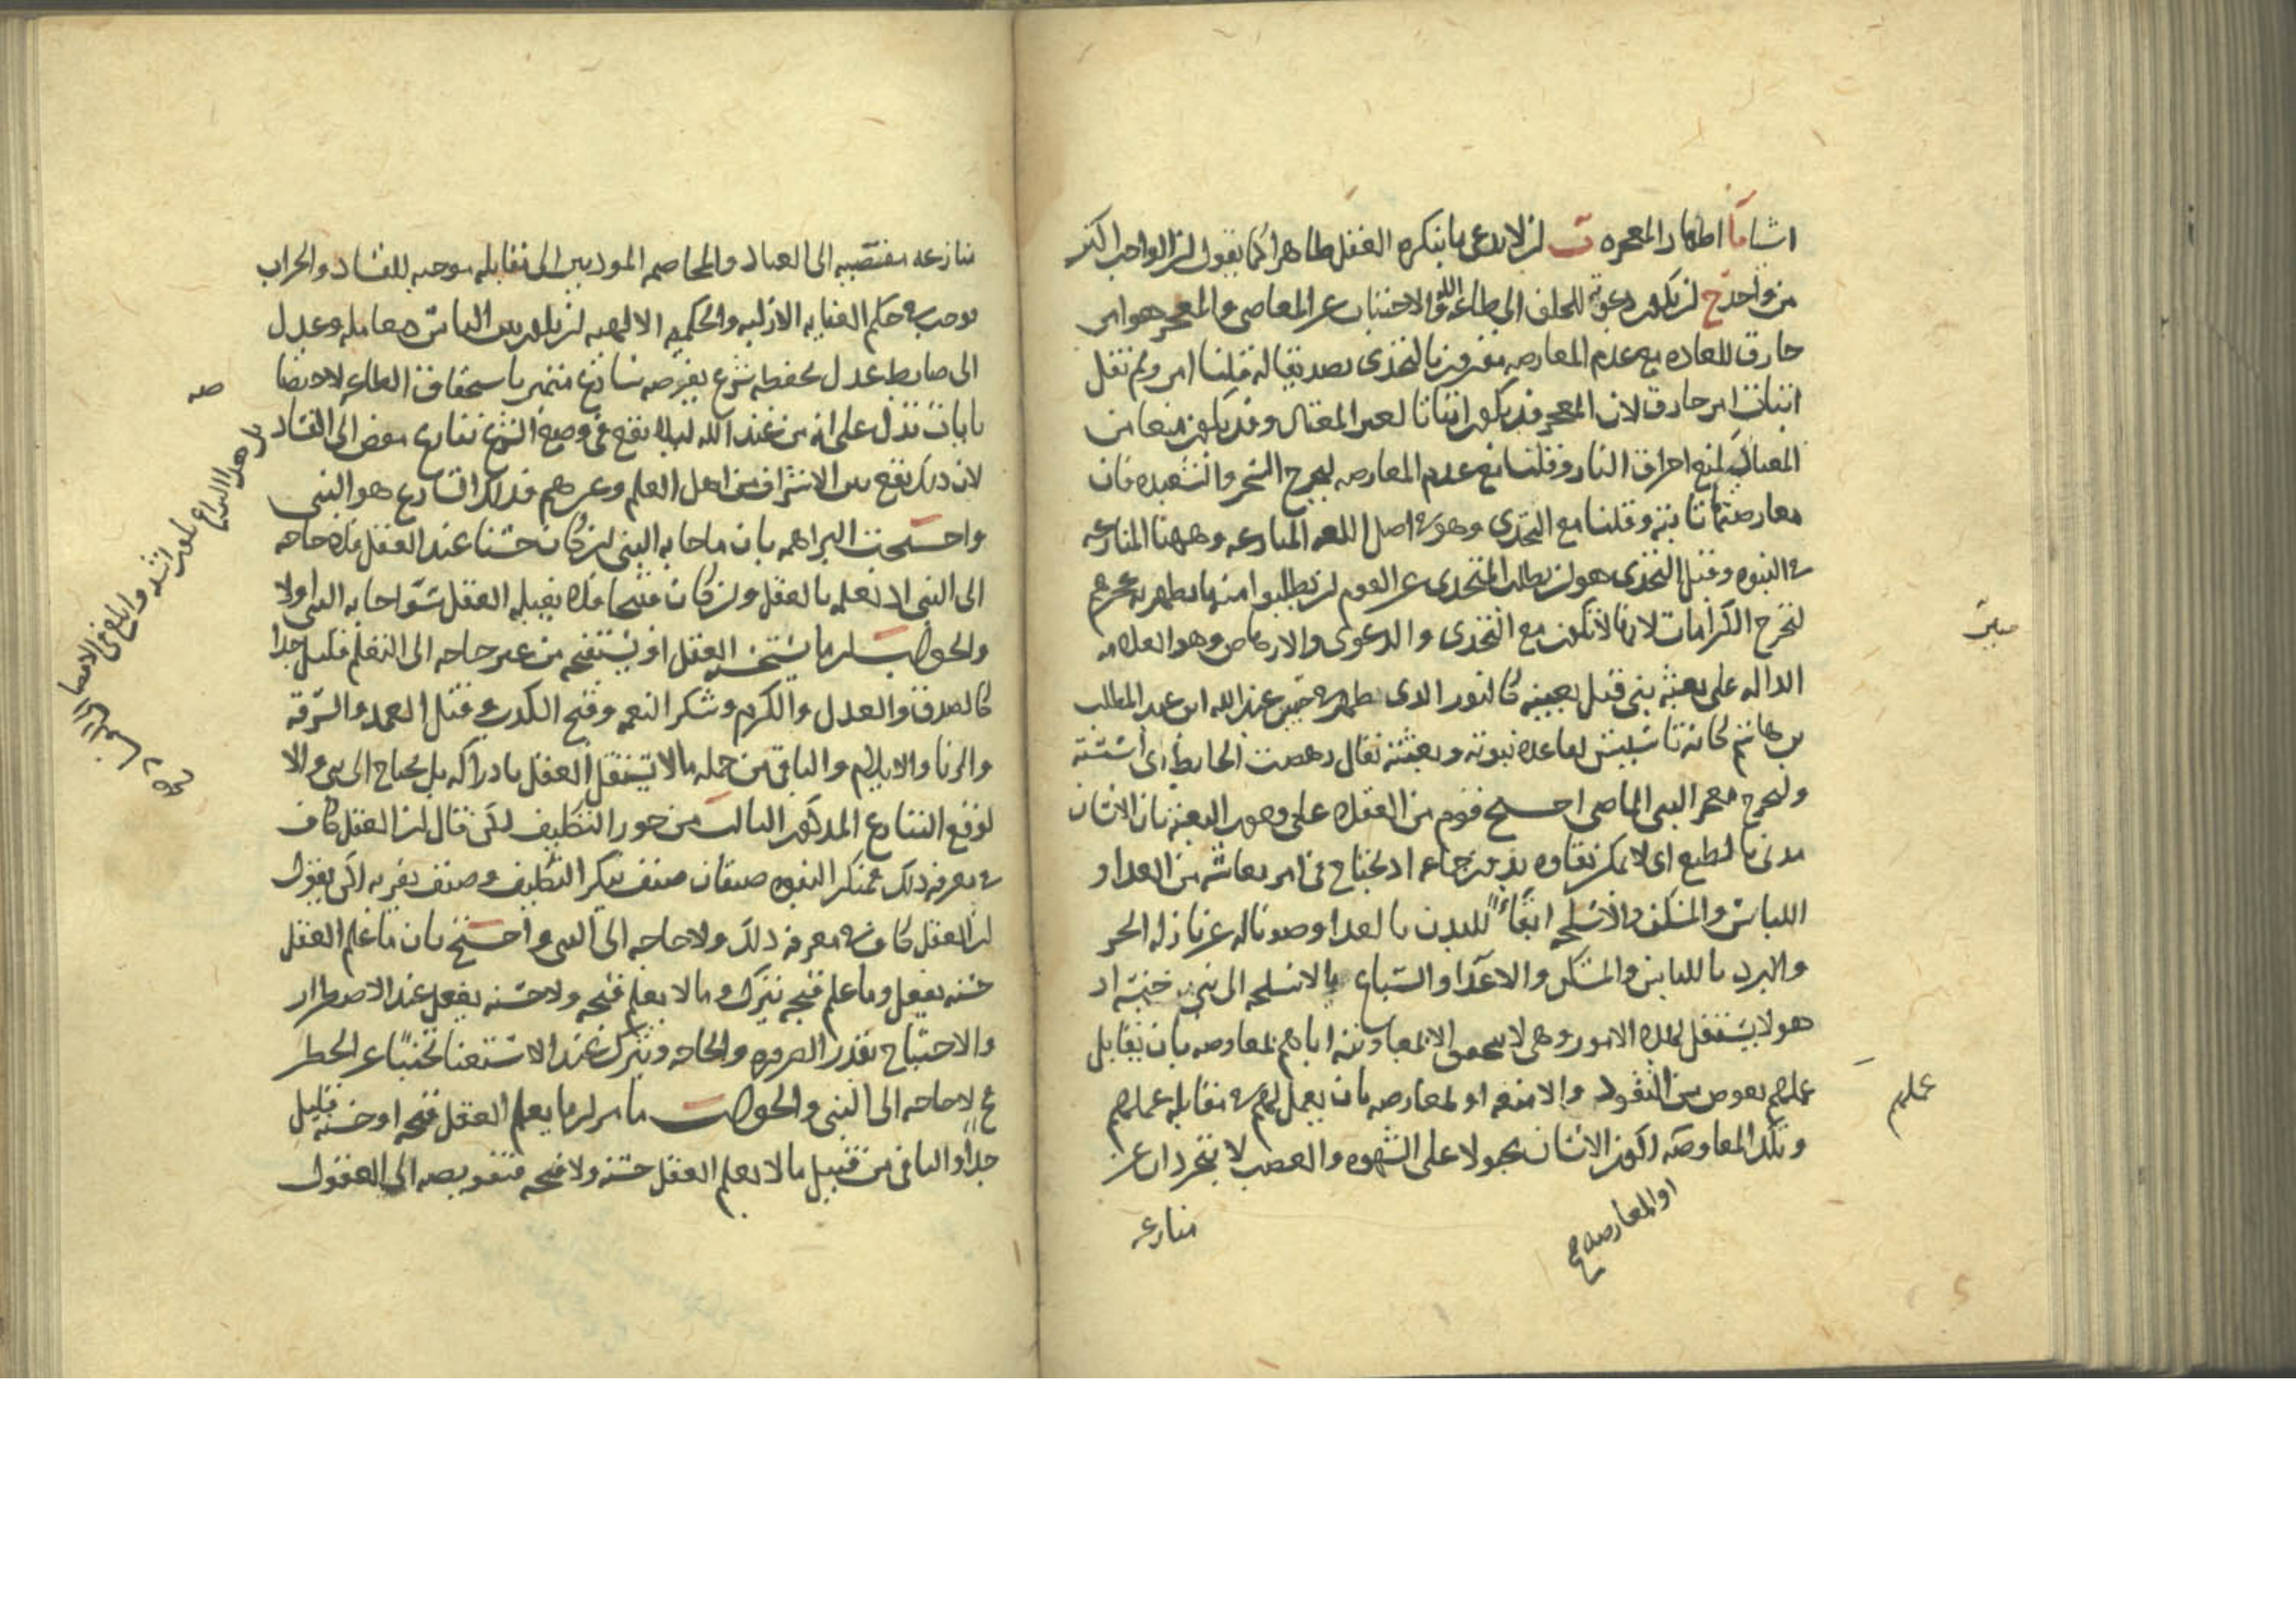 اشيا ما اظهار المعجزة ب ان لا يدعى ما ينكره العقل ظاهرا كما يقول ان الواحد اكثر
من واحد ج ان يكون دعوته للخلق الى طاعة الله والاجتناب عن المعاصي والمعجز هو امر
خارق للعاده مع عدم المعارضه مقرون بالتحدى تصديقا له فقلنا امر ولم نقل
اثبات امر خارق لان المعجز قد يكون اتيانا لغير المعتاد وقد يكون منعا من
المعتاد كمنع احراق النار وقلنا مع عدم المعارضه ليخرج السحر والشعبده فان
معارضتها ثابته وقلنا مع التحدى وهو في اصل اللغه المنازعه وههنا المنازعه
في النبوه وقيل التحدى هو ان يطلب المتحدى عن القوم ان يطلبوا منه ما يظهر به عجزهم
لتخرج الكرامات لانها لا تكون مع التحدى والدعوى والارهاص وهو العلامه
الداله على بعثة نبي قبل بعثته كالنور الذى ظهر في جبين عبد الله ابن عبد المطلب
بن هاشم كانه تاسيس لقاعدة نبوته وبعثته يقال رهصت الحايط اى اسسته
وليخرج معجز النبي الماضى احتج قوم من العقلاء على وجوب البعثة بان الانسان
مدنى بالطبع اى لا يمكن بقاوه بدون جماعه اذ يحتاج في امر معاشه من الغدا و
اللباس والمسكن والاسلحه ابقاء للبدن بالغدا وصونا له عن نازلة الحر
والبرد باللباس والمسكن والاعدا والسباع بالاسلحه الى بني جنسه اذ
هو لا يستقل بهذه الامور وهى لا يتحقق الا بمعاونته اياهم بمعاوضه بان يقابل
عملهم بعوض من النقود والامتعه او بمعارضه بان يعمل لهم في مقابله عملهم
وتلك المعاوضه لكون الانسان مجبولا على الشهوه والغضب لا يتجردان عن
او المعارضه صح
منازعه
جبين
عملهم
منازعه مفضيه الى العناد والمخاصمه الموديين الى مقابله موجبه للفساد والخراب
فوجب في حكم العنايه الازليه والحكمه الالهيه ان يكون بين الناس معامله وعدل
الى ضابط عدل يحفظه شرع يفرضه شارع متميز باستحقاق الطاعه لاختصاصه
بايات تدل على انه من عند الله ليلا يقع في وضع الشرع تنازع مفض الى الفساد
لان ذلك يقع بين الاشراف من اهل العلم وغيرهم فذلك الشارع هو النبي
واحتجت البراهمه بان ما جا به النبي ان كان حسنا عند العقل فلا حاجه
الى النبي اذ نعلمه بالعقل وان كان قبيحا فلا يقبله العقل سوا جا به النبي او لا
والجواب ان ما يستحسنه العقل او يستقبحه من غير حاجه الى التعلم قليل جدا
كالصدق والعدل والكرم وشكر النعمه وقبح الكدب وقتل العمد والسرقه
والزنا والايلام والباقى من جمله ما لا يستقل العقل بادراكه بل يحتاج الى نبي والا
لوقع التنازع المذكور الثالث من جوز التكليف لكن قال ان العقل كاف
في معرفه ذلك فمنكر النبوه صنفان صنف ينكر التكليف وصنف يقر به لكن يقول
ان العقل كاف في معرفه ذلك ولا حاجه الى النبي واحتج بان ما علم العقل
حسنه يفعل وما علم قبحه يترك وما لا يعلم قبحه ولا حسنه يفعل عند الاضطرار
والاحتياج بقدر الضروره والحاجه ويترك عند الاستغنا تجنبا عن الخطر
فح لا حاجه الى النبي والجواب ما مر ان ما يعلم العقل قبحه او حسنه قليل
جدا والباقى من قبيل ما لا يعلم العقل حسنه ولا قبحه فتفويضه الى العقول
بل هذا النزاع يكون اشد وابلغ في